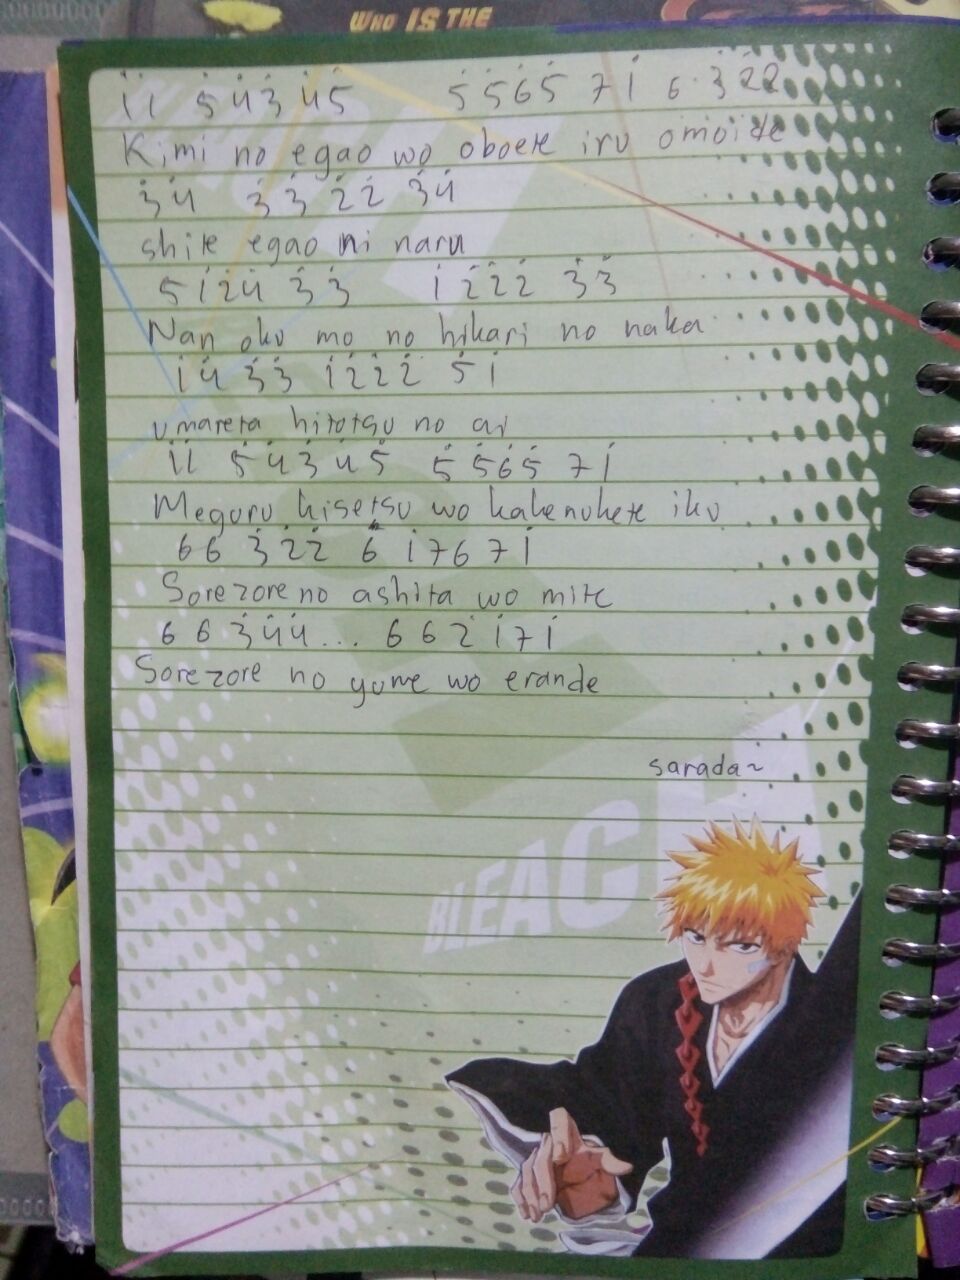 WHO IS THE
i̇ i̇ 5̇ 4̇ 3̇ 4̇ 5̇ 5̇ 5̇ 6̇ 5̇ 7 i̇ 6 · 3̇ 2̇ 2̇
Kimi no egao wo oboete iru omoide
3̇ 4̇ 3̇ 3̇ 2̇ 2̇ 3̇ 4̇
shite egao ni naru
5 i̇ 2̇ 4̇ 3̇ 3̇ i̇ 2̇ 2̇ 2̇ 3̇ 3̇
Nan oku mo no hikari no naka
i̇ 4̇ 3̇ 3̇ i̇ 2̇ 2̇ 2̇ 5̇ i̇
umareta hitotsu no ai
i̇ i̇ 5̇ 4̇ 3̇ 4̇ 5̇ 5̇ 5̇ 6̇ 5̇ 7 i̇
Meguru kisetsu wo kakenukete iku
6 6 3̇ 2̇ 2̇ 6 i̇ 7 6 7 i̇
Sorezore no ashita wo mite
6 6 3̇ 4̇ 4̇ ... 6 6 2̇ i̇ 7 i̇
Sorezore no yume wo erande
sarada~
BLEACH